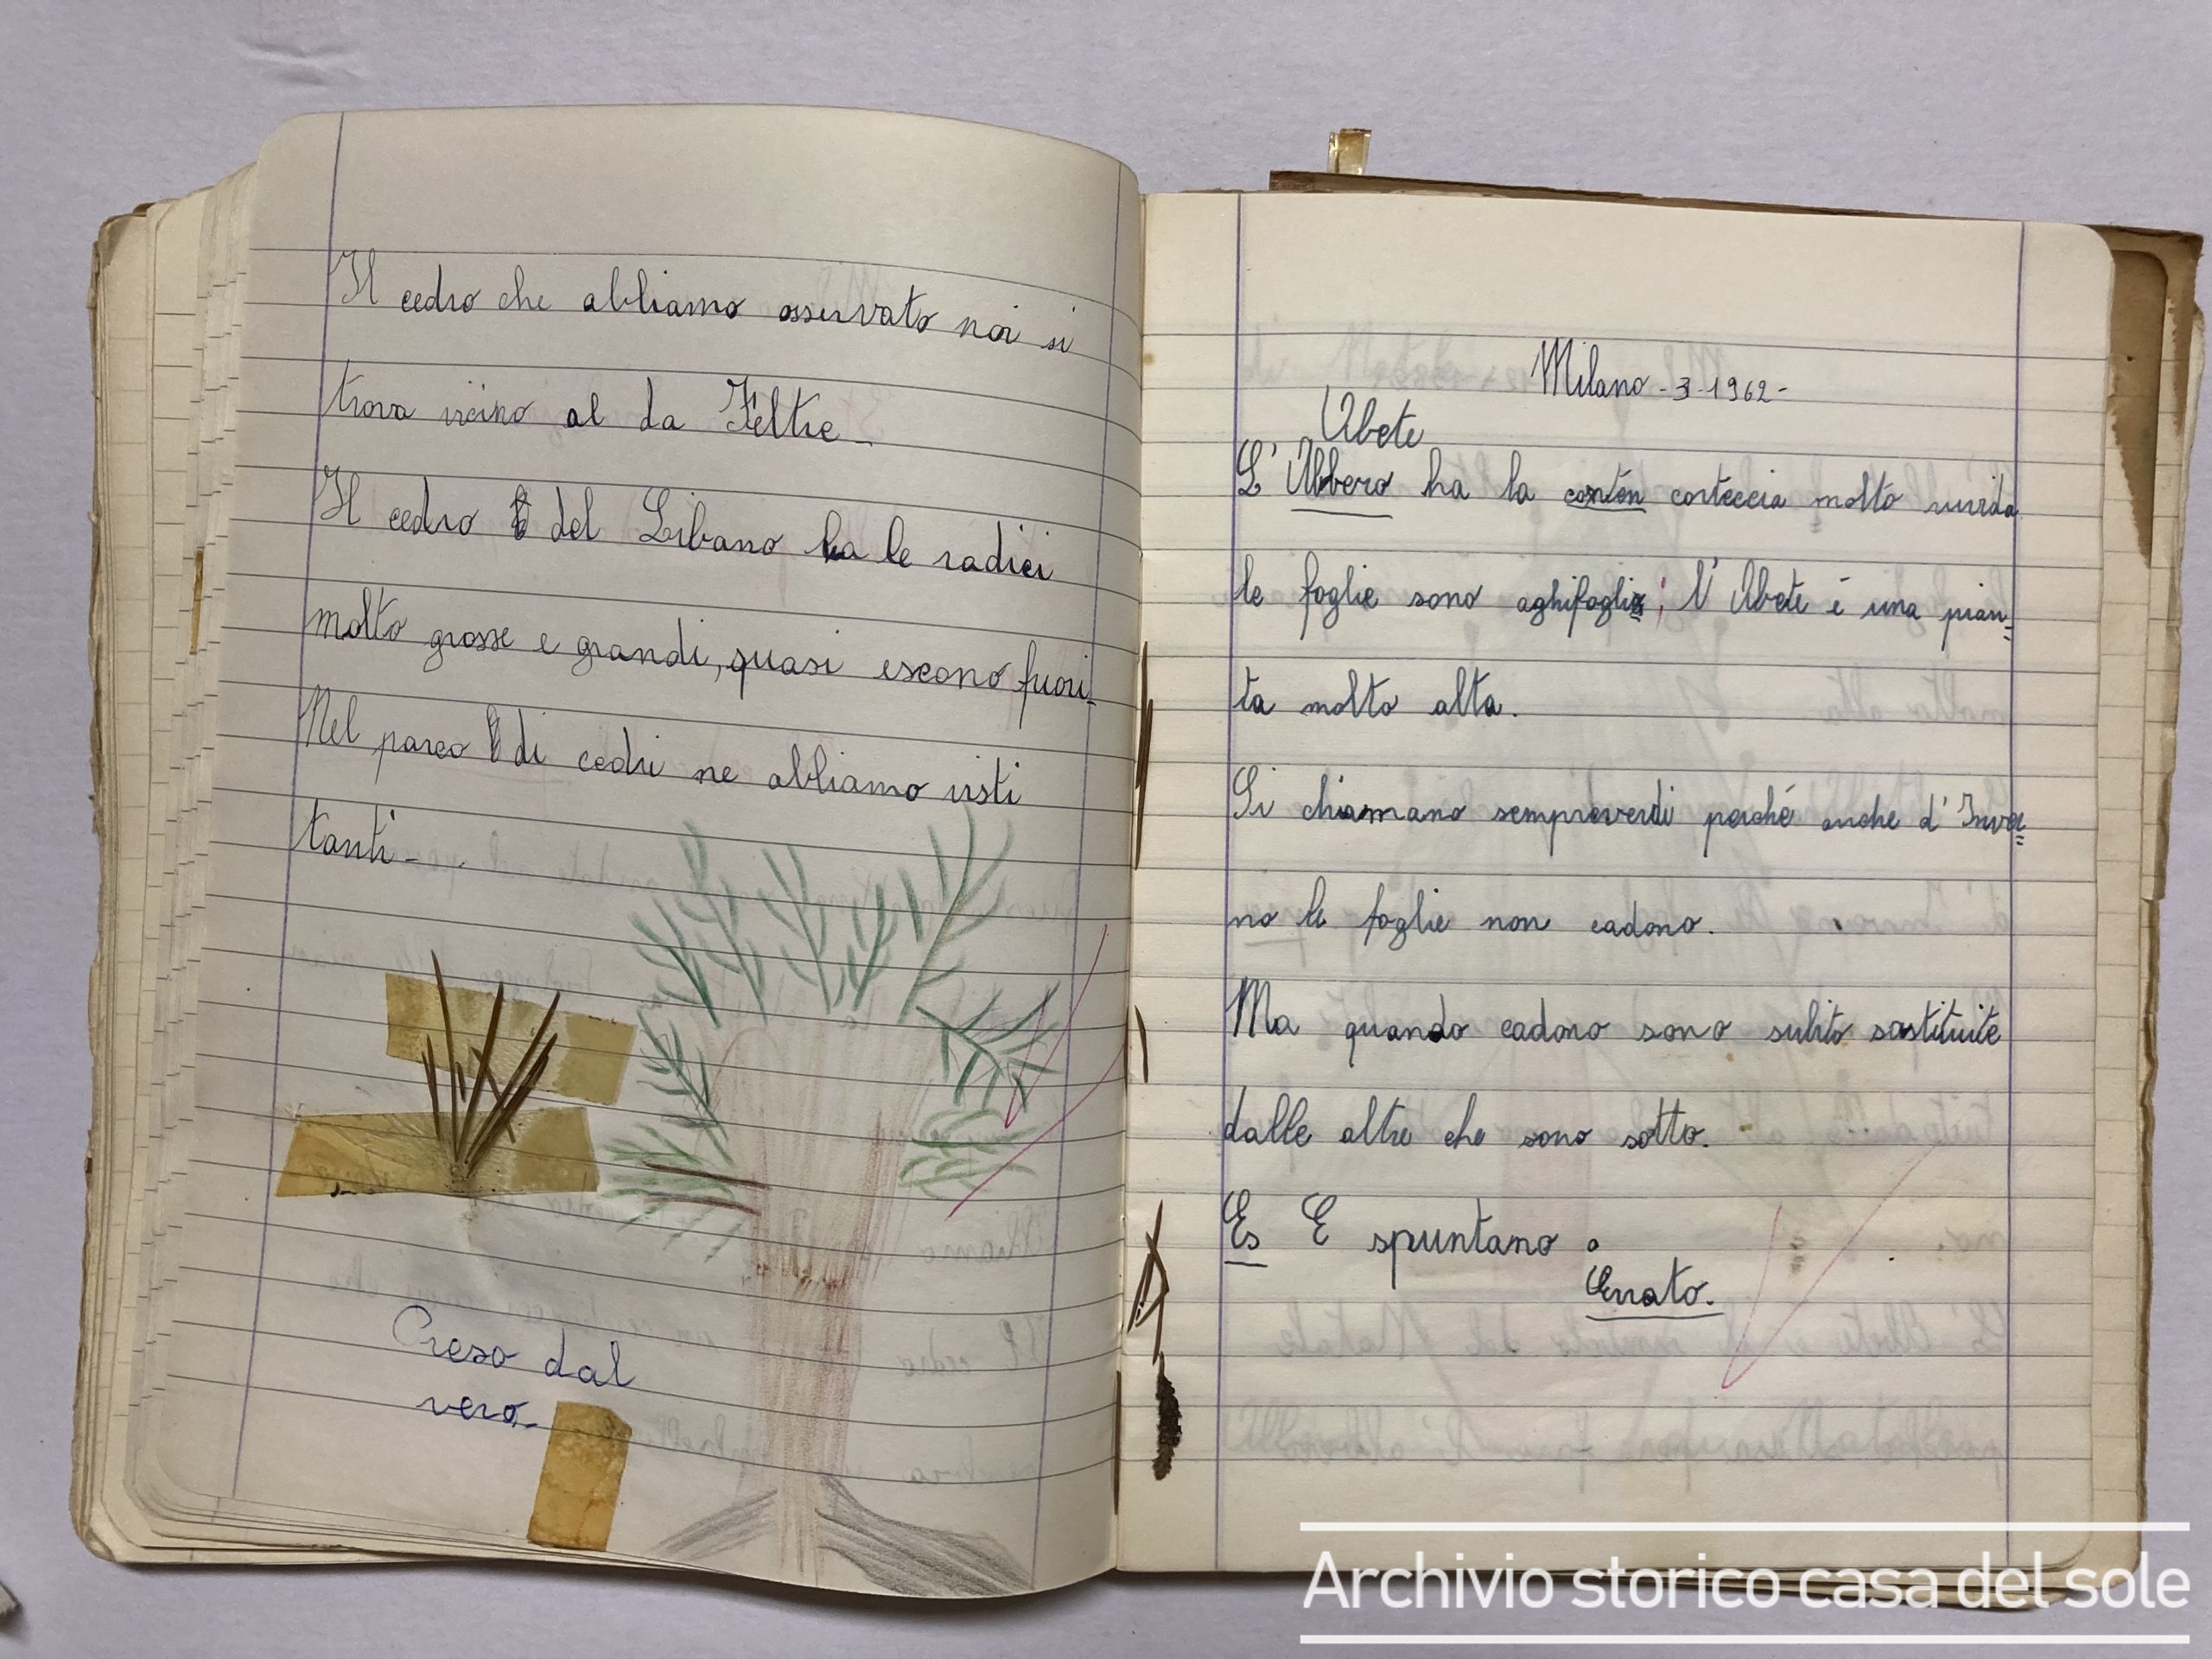 Il cedro che abbiamo osservato noi si
trova vicino al da Feltre_
Il cedro del Libano ha le radici
molto grosse e grandi, quasi escono fuori_
Nel parco di cedri ne abbiamo visti
tanti_.
Creso dal
vero_
Milano-3-1962-
Abete
L' Abbero ha la conten corteccia molto ruvida
le foglie sono aghifoglie; l' Abete é una pian=
ta molto alta.
Si chiamano sempreverdi perché anche d' Inver=
no le foglie non cadono.
Ma quando cadono sono subito sostituite
dalle altre che sono sotto.
Es E spuntano
Errato.
Archivio storico casa del sole